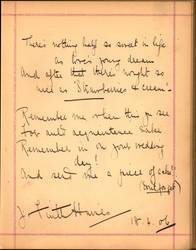 There's nothing half so sweet in life
as love's young dream
And after that there's nought so
nice as "Strawberries & cream".
Remember me when this you see
For auld acquaintance sake
Remember me on your wedding
day!
And send me a piece of cake!"
(Don't forget)
J. Harris
18. 6. 06